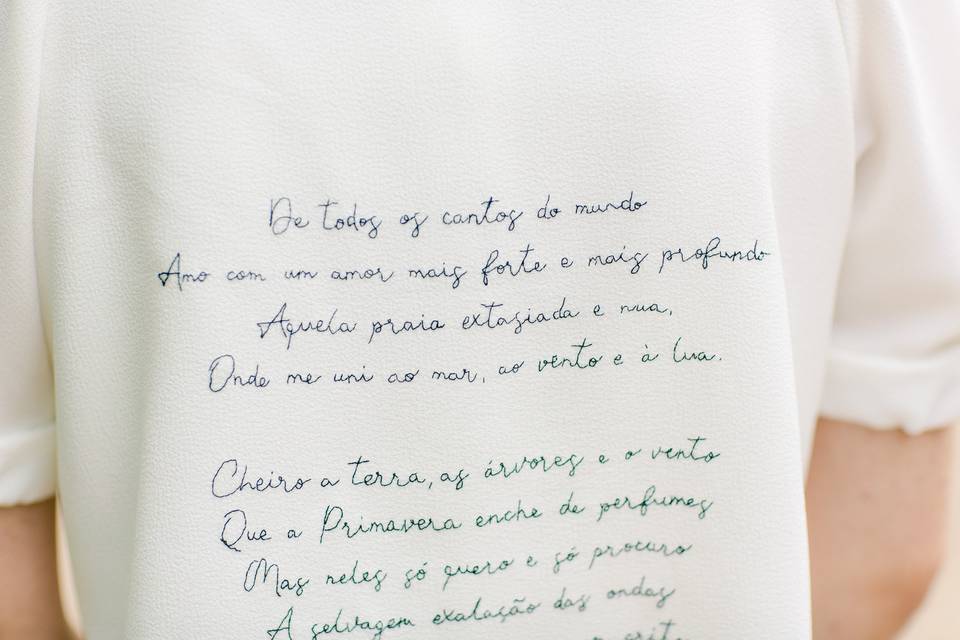 De todos os cantos do mundo
Amo com um amor mais forte e mais profundo
Aquela praia extasiada e nua,
Onde me uni ao mar, ao vento e à lua.
Cheiro a terra, as árvores e o vento
Que a Primavera enche de perfumes
Mas neles só quero e só procuro
A selvagem exalação das ondas